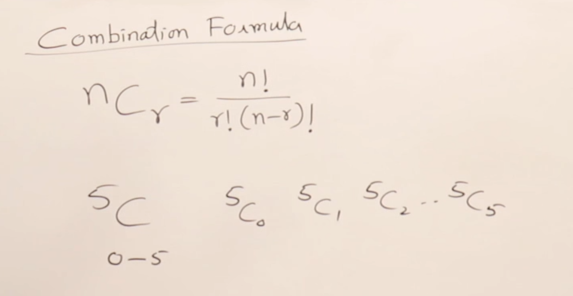 Combination Formula
nCr = n! / r!(n-r)!
5C 5C0 5C1 5C2 .. 5C5
0-5